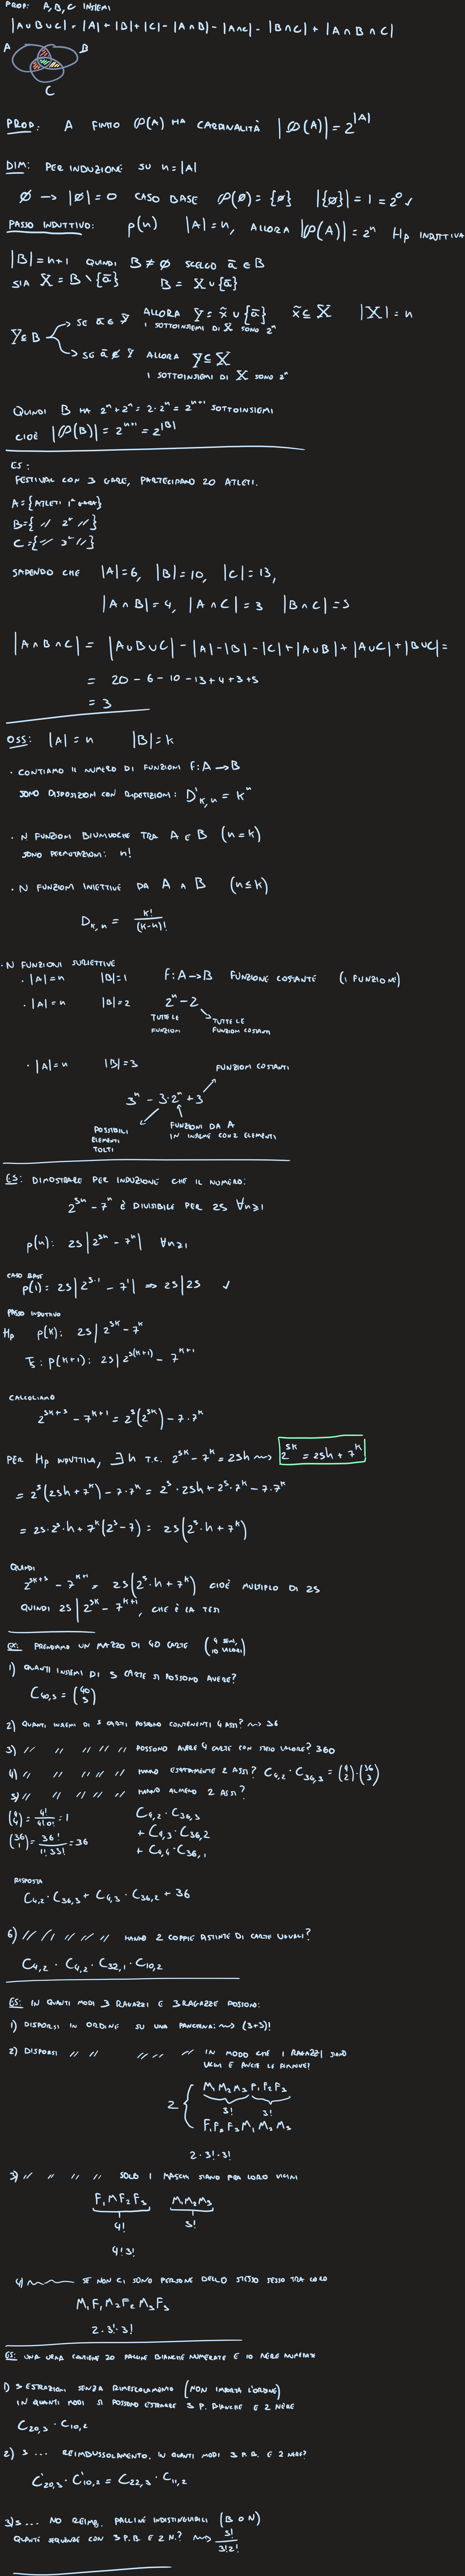 PROP: A, B, C INSIEMI
|A∪B∪C| = |A| + |B| + |C| - |A∩B| - |A∩C| - |B∩C| + |A∩B∩C|
A B
C
PROP: A FINITO ℘(A) HA CARDINALITÀ |℘(A)| = 2^|A|
DIM: PER INDUZIONE SU n = |A|
∅ → |∅| = 0 CASO BASE ℘(∅) = {∅} |{∅}| = 1 = 2^0 ✓
PASSO INDUTTIVO: p(n) |A| = n, ALLORA |℘(A)| = 2^n Hp INDUTTIVA
|B| = n+1 QUINDI B ≠ ∅ SCELGO ā ∈ B
SIA X = B \ {ā} B = X ∪ {ā}
Y ⊆ B
SE ā ∈ Y ALLORA Y = x̃ ∪ {ā} x̃ ⊆ X |X| = n
I SOTTOINSIEMI DI X SONO 2^n
SE ā ∉ Y ALLORA Y ⊆ X
I SOTTOINSIEMI DI X SONO 2^n
QUINDI B HA 2^n + 2^n = 2·2^n = 2^(n+1) SOTTOINSIEMI
CIOÈ |℘(B)| = 2^(n+1) = 2^|B|
ES:
FESTIVAL CON 3 GARE, PARTECIPANO 20 ATLETI.
A = {ATLETI 1ª GARA}
B = { // 2ª // }
C = { // 3ª // }
SAPENDO CHE |A| = 6, |B| = 10, |C| = 13,
|A∩B| = 4, |A∩C| = 3 |B∩C| = 5
|A∩B∩C| = |A∪B∪C| - |A| - |B| - |C| + |A∪B| + |A∪C| + |B∪C| =
= 20 - 6 - 10 - 13 + 4 + 3 + 5
= 3
OSS: |A| = n |B| = k
· CONTIAMO IL NUMERO DI FUNZIONI f: A → B
SONO DISPOSIZIONI CON RIPETIZIONI: D'k,n = k^n
· N FUNZIONI BIUNIVOCHE TRA A E B (n = k)
SONO PERMUTAZIONI: n!
· N FUNZIONI INIETTIVE DA A A B (n ≤ k)
Dk,n = k!/(k-n)!
· N FUNZIONI SURIETTIVE
· |A| = n |B| = 1 f: A → B FUNZIONE COSTANTE (1 FUNZIONE)
· |A| = n |B| = 2 2^n - 2
TUTTE LE FUNZIONI
TUTTE LE FUNZIONI COSTANTI
· |A| = n |B| = 3
FUNZIONI COSTANTI
3^n - 3·2^n + 3
POSSIBILI ELEMENTI TOLTI
FUNZIONI DA A IN INSIEME CON 2 ELEMENTI
ES: DIMOSTRARE PER INDUZIONE CHE IL NUMERO:
2^5n - 7^n È DIVISIBILE PER 25 ∀n≥1
p(n): 25 | 2^5n - 7^n | ∀n≥1
CASO BASE
p(1): 25 | 2^5·1 - 7^1 | ⇒ 25 | 25 ✓
PASSO INDUTTIVO
Hp p(k): 25 | 2^5k - 7^k
Ts: p(k+1): 25 | 2^5(k+1) - 7^(k+1)
CALCOLIAMO
2^(5k+5) - 7^(k+1) = 2^5(2^5k) - 7·7^k
PER Hp INDUTTIVA, ∃h T.C. 2^5k - 7^k = 25h ⇝ 2^5k = 25h + 7^k
= 2^5(25h + 7^k) - 7·7^k = 2^5·25h + 2^5·7^k - 7·7^k
= 25·2^5·h + 7^k(2^5 - 7) = 25(2^5·h + 7^k)
QUINDI
2^(5k+5) - 7^(k+1) = 25(2^5·h + 7^k) CIOÈ MULTIPLO DI 25
QUINDI 25 | 2^5k - 7^(k+1), CHE È LA TESI
ES: PRENDIAMO UN MAZZO DI 40 CARTE (4 SEMI, 10 VALORI)
1) QUANTI INSIEMI DI 5 CARTE SI POSSONO AVERE?
C40,5 = (40 5)
2) QUANTI INSIEMI DI 5 CARTE POSSONO CONTENENTI 4 ASSI? ⇝ 36
3) // // // // // POSSONO AVERE 4 CARTE CON STESSO VALORE? 360
4) // // // // // HANNO ESATTAMENTE 2 ASSI? C4,2 · C36,3 = (4 2)·(36 3)
5) // // // // // HANNO ALMENO 2 ASSI?
(4 4) = 4!/4!0! = 1 C4,2 · C36,3
+ C4,3 · C36,2
(36 1) = 36!/1!35! = 36 + C4,4 · C36,1
RISPOSTA
C4,2 · C36,3 + C4,3 · C36,2 + 36
6) // // // // // HANNO 2 COPPIE DISTINTE DI CARTE UGUALI?
C4,2 · C4,2 · C32,1 · C10,2
ES: IN QUANTI MODI 3 RAGAZZI E 3 RAGAZZE POSSONO:
1) DISPORSI IN ORDINE SU UNA PANCHINA: ⇝ (3+3)!
2) DISPORSI // // // // // IN MODO CHE I RAGAZZI SIANO
VICINI E ANCHE LE
2 { M1 M2 M3 F1 F2 F3
3! 3!
F1 F2 F3 M1 M2 M3
2·3!·3!
3) // // // // SOLO I MASCHI SIANO FRA LORO VICINI
F1 M F2 F3 M1 M2 M3
4! 3!
4! 3!
4) SE NON CI SONO PERSONE DELLO STESSO SESSO TRA LORO
M1 F1 M2 F2 M3 F3
2·3!·3!
ES: UNA URNA CONTIENE 20 PALLINE BIANCHE NUMERATE E 10 NERE NUMERATE
1) 5 ESTRAZIONI SENZA (NON IMPORTA L'ORDINE)
IN QUANTI MODI SI POSSONO ESTRARRE 3 P. BIANCHE E 2 NERE
C20,3 · C10,2
2) 5 ... REIMBUSSOLAMENTO. IN QUANTI MODI 3 P.B. E 2 NERE?
C'20,3 · C'10,2 = C22,3 · C11,2
3) 5 ... NO REIMB, PALLINE INDISTINGUIBILI (B O N)
QUANTE SEQUENZE CON 3 P.B. E 2 N.? ⇝ 5!/3!2!